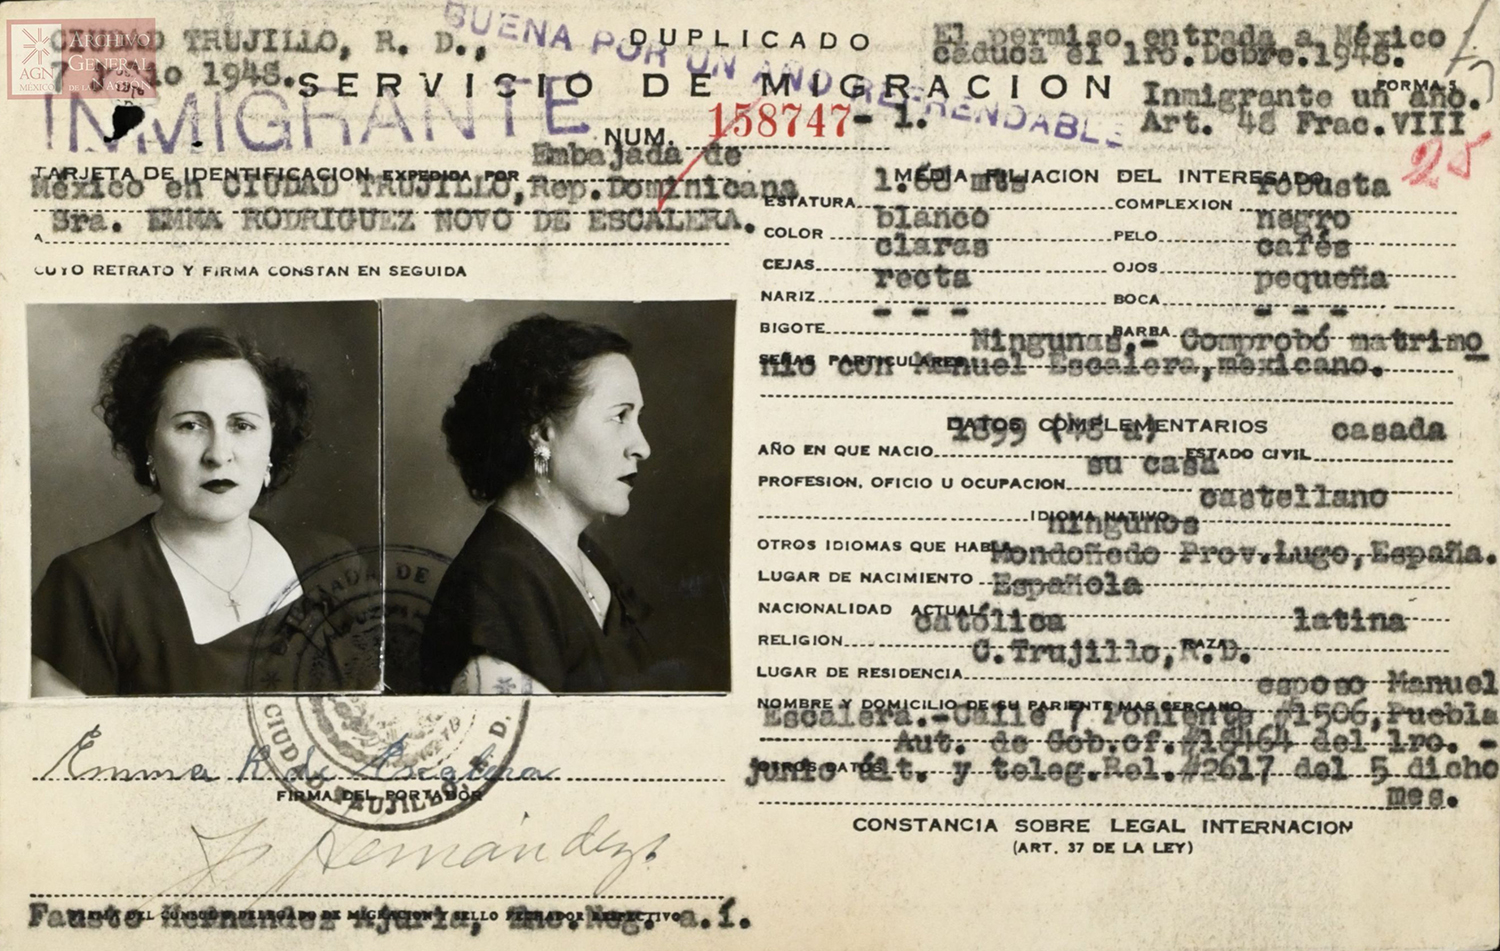 ARCHIVO
GENERAL
AGN
MÉXICO
DE LA NACIÓN
CIUDAD TRUJILLO, R. D.,
7 1948.
BUENA POR UN AÑO REFRENDABLE
DUPLICADO
El permiso entrada a México
caduca el 1ro.Dcbre.1948.
SERVICIO DE MIGRACION
FORMA
INMIGRANTE
NUM. 158747- 1.
Inmigrante un año.
Art. 48 Frac.VIII
25
Embajada de
TARJETA DE IDENTIFICACION EXPEDIDA POR
México en CIUDAD TRUJILLO,Rep.Dominicana
Sra. EMMA RODRIGUEZ NOVO DE ESCALERA.
A
CUYO RETRATO Y FIRMA CONSTAN EN SEGUIDA
MEDIA FILIACION DEL INTERESADO
ESTATURA 1.68 mts COMPLEXION robusta
COLOR blanco PELO negro
CEJAS claras OJOS cafés
NARIZ recta BOCA pequeña
BIGOTE - - - BARBA - - -
SEÑAS PARTICULARES Ningunas.- Comprobó matrimo
nio con Manuel Escalera,mexicano.
DATOS COMPLEMENTARIOS
AÑO EN QUE NACIO 1899 (48 a) ESTADO CIVIL casada
PROFESION, OFICIO U OCUPACION su casa
IDIOMA NATIVO castellano
OTROS IDIOMAS QUE HABLA ningunos
LUGAR DE NACIMIENTO Mondoñedo Prov.Lugo,España.
NACIONALIDAD ACTUAL Española
RELIGION católica RAZA latina
LUGAR DE RESIDENCIA C.Trujillo,R.D.
NOMBRE Y DOMICILIO DE SU PARIENTE MAS CERCANO esposo Manuel
Escalera.-Calle 7 Poniente #1506,Puebla
OTROS DATOS Aut. de Gob.of.#18464 del 1ro. -
junio últ. y teleg.Rel.#2617 del 5 dicho
mes.
CONSTANCIA SOBRE LEGAL INTERNACION
(ART. 37 DE LA LEY)
EMBAJADA DE
CIUDAD TRUJILLO, R. D.
Emma R de Escalera
FIRMA DEL PORTADOR
F. Hernández
FIRMA DEL CONSUL O DELEGADO DE MIGRACION Y SELLO FECHADOR RESPECTIVO
Fausto Hernández Ajuria, Enc.Neg. a.i.